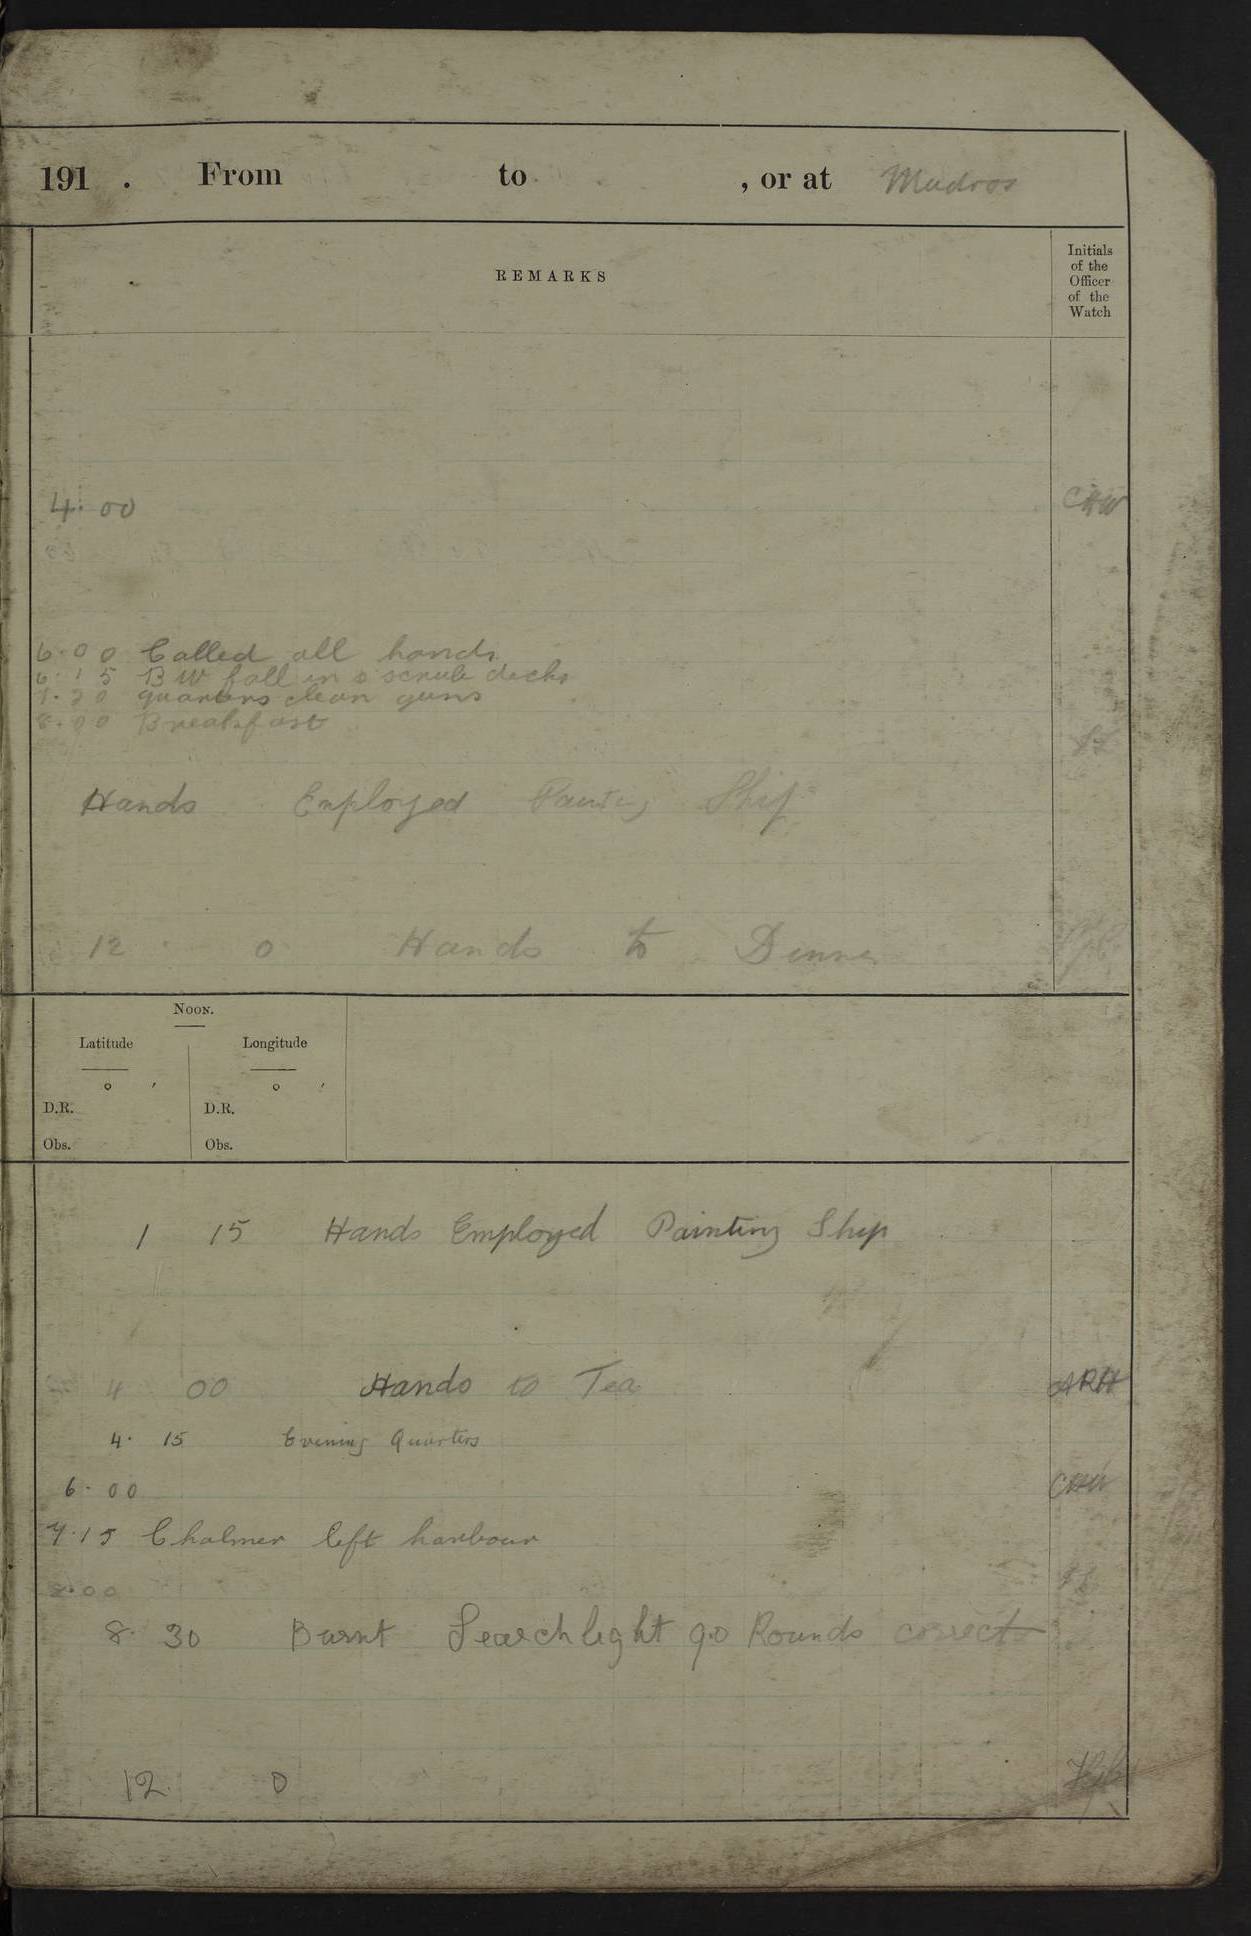 191 . From to , or at Mudros
REMARKS
Initials
of the
Officer
of the
Watch
4.00 CHW
6.00 Called all hands
6.15 BW fall in & scrub decks
7.30 quarters clean guns
8.00 Breakfast
Hands Employed Painting Ship
12 . 0 Hands to Dinner
NOON.
Latitude Longitude
° ′ ° ′
D.R. D.R.
Obs. Obs.
1 15 Hands Employed Painting Ship
4 00 Hands to Tea ARH
4. 15 Evening Quarters
6.00 CHW
7.15 Chalmer left harbour
8.00
8. 30 Burnt Searchlight 9.0 Rounds correct
12. 0